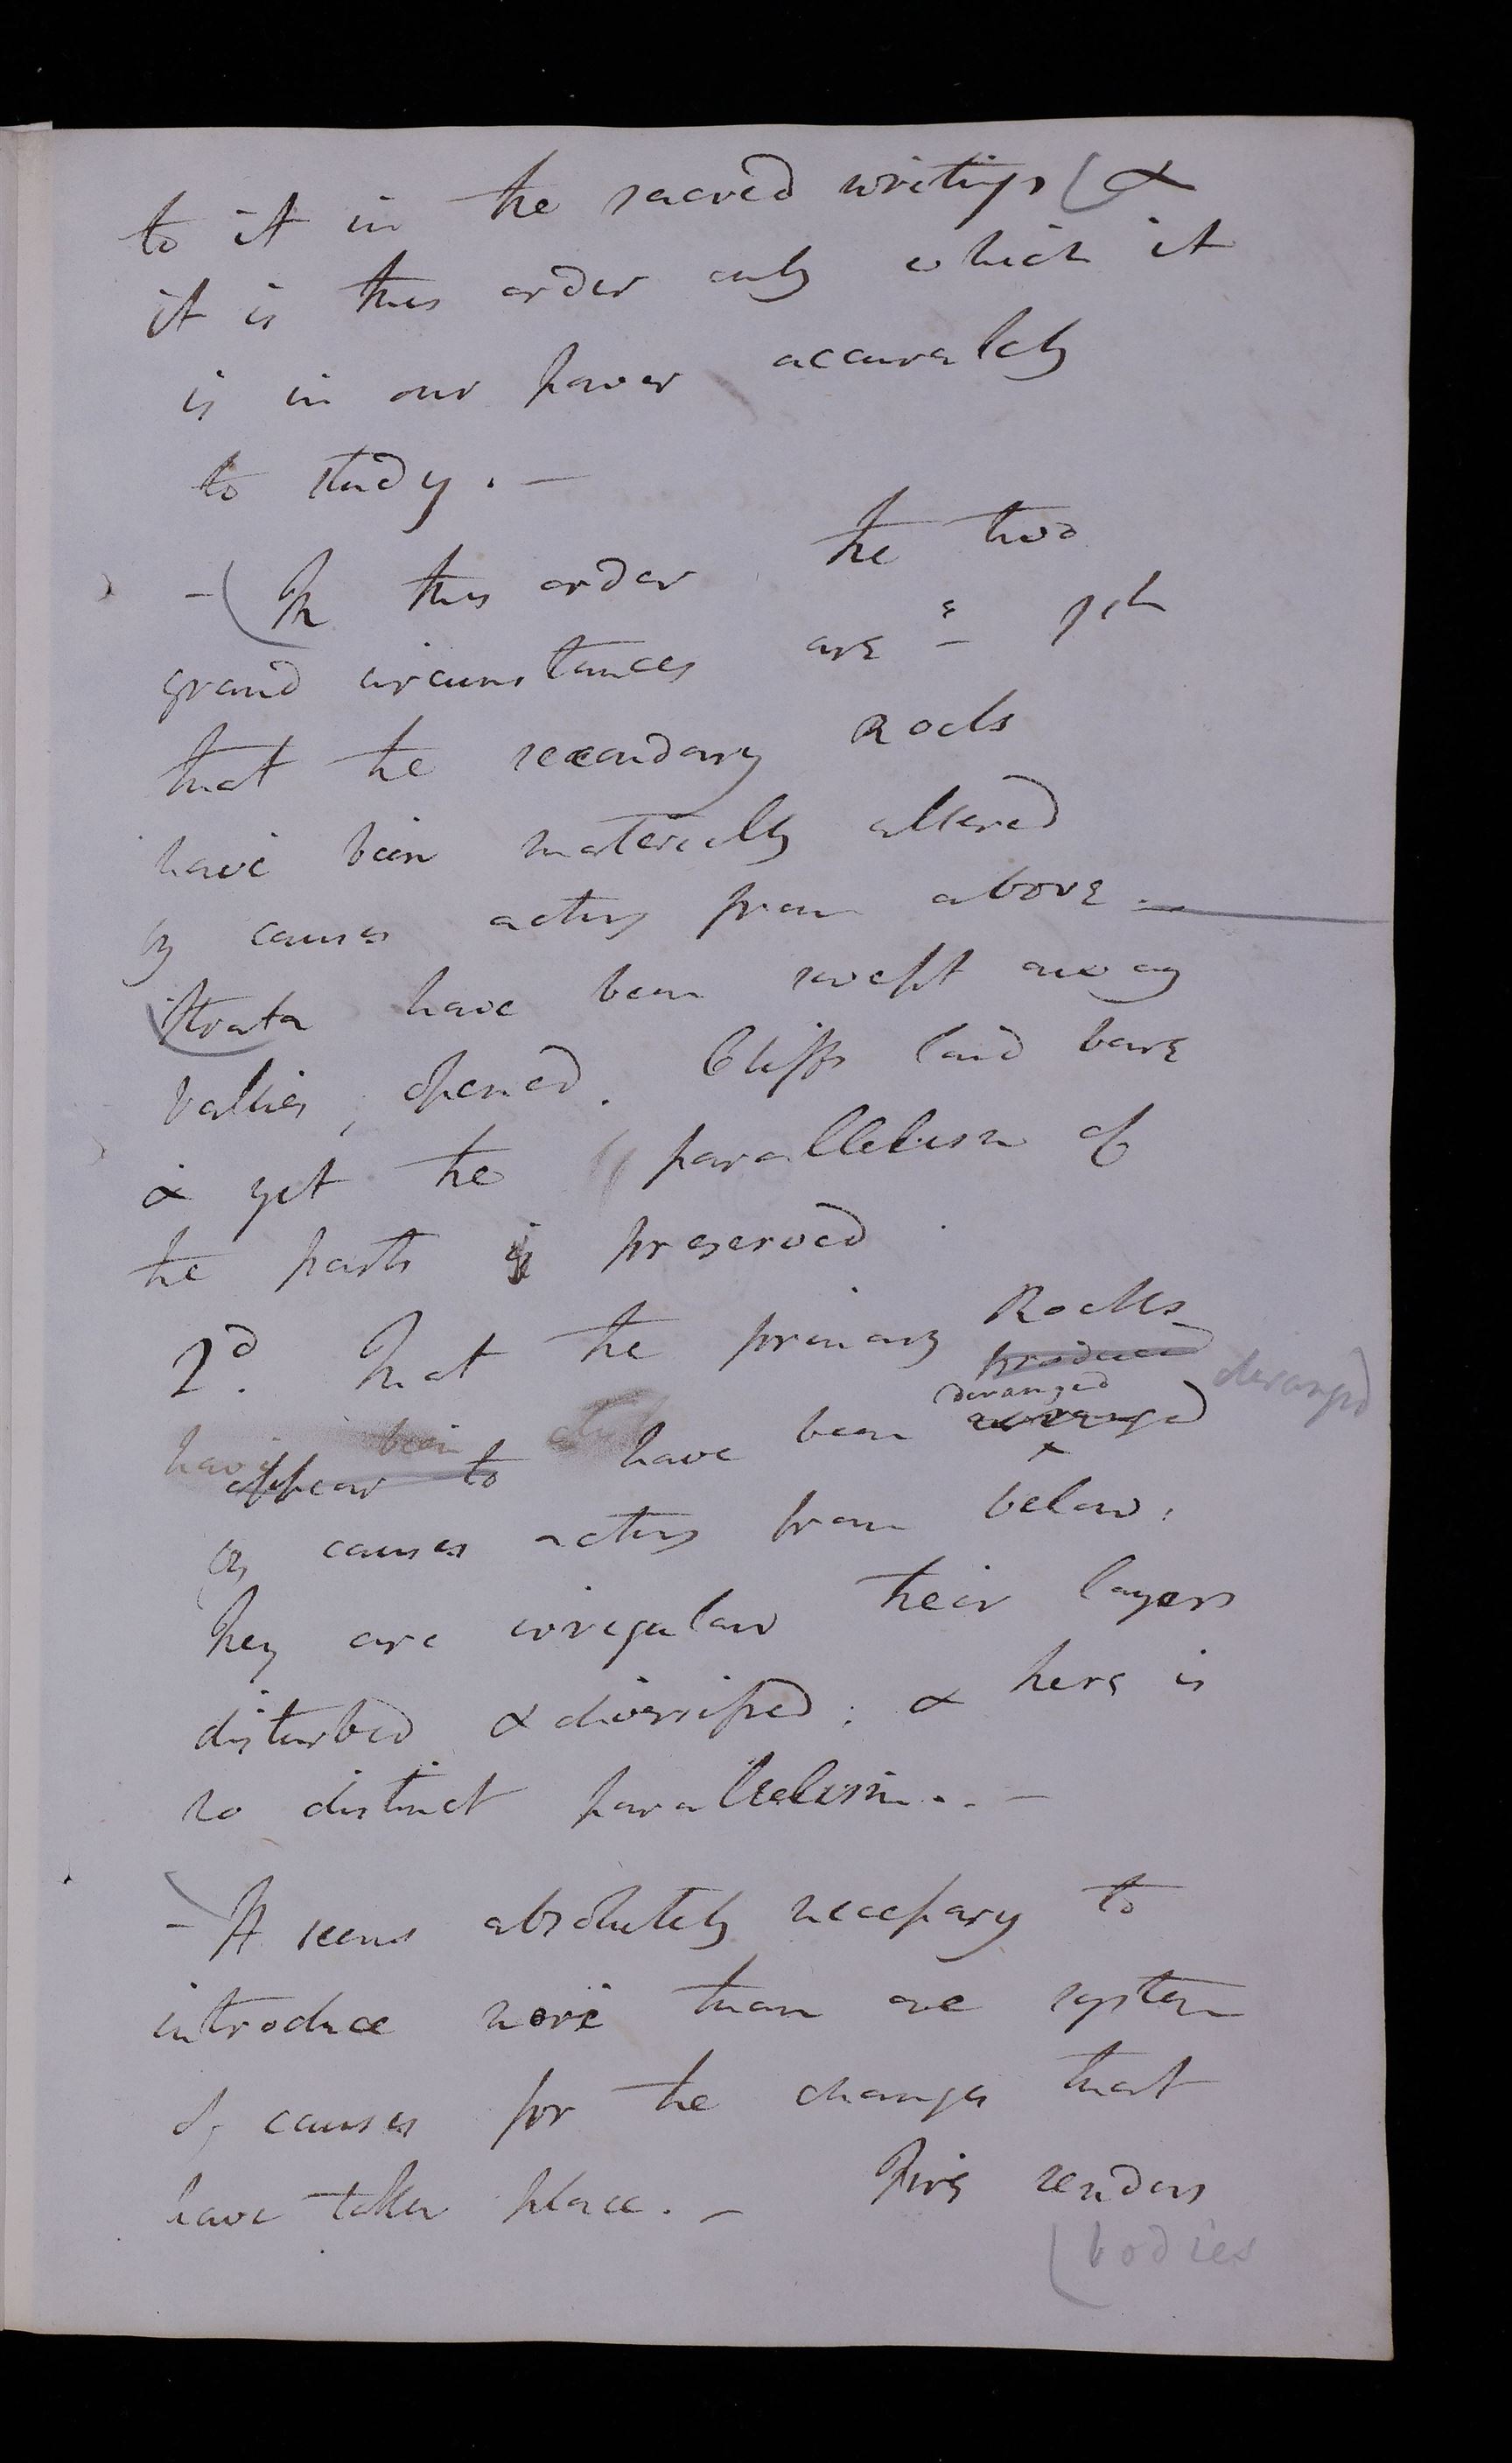 to it in the sacred writings (&
it is this order only which it
is in our power accurately
to study. —
— (In this order the two
grand circumstances are :
that the secondary Rocks
have been materially altered
by causes acting from above. —
Strata have been swept away
Vallies, opened. Cliffs laid bare
& yet the parallelism of
the parts is preserved
2d. That the primary Rocks
produced deranged
deranged
appear to have been arranged
having been
by causes acting from below.
They are irregular their layers
disturbed & diversified; & there is
no distinct parallelism.. —
— It seems absolutely necessary to
introduce more than one system
of causes for the changes that
have taken place. — Fire renders
(bodies